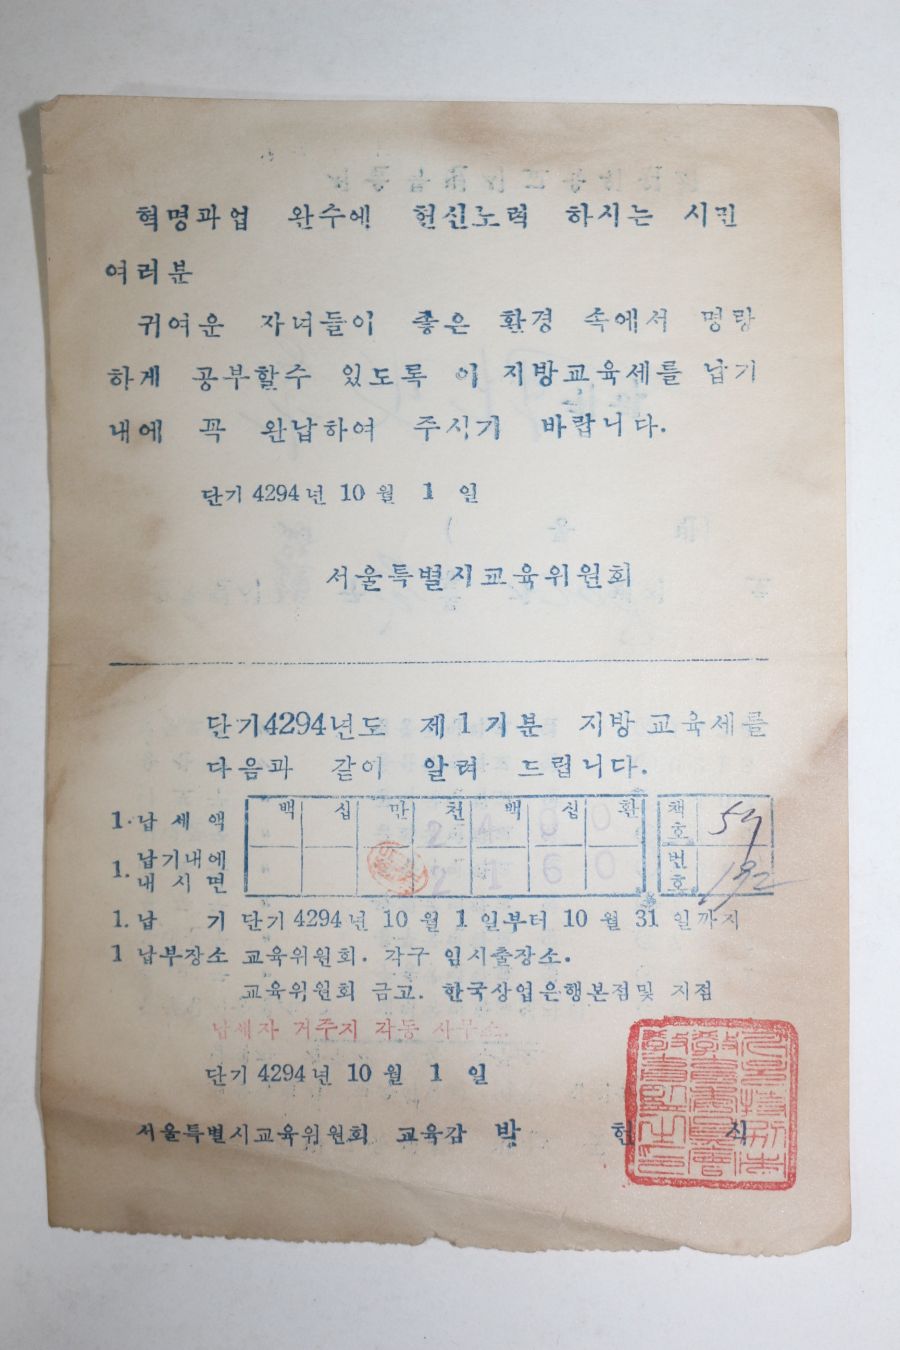 혁명과업 완수에 헌신노력 하시는 시민
여러분
귀여운 자녀들이 좋은 환경 속에서 명랑
하게 공부할수 있도록 이 지방교육세를 납기
내에 꼭 완납하여 주시기 바랍니다.
단기 4294년 10월 1일
서울특별시교육위원회
단기4294년도 제1기분 지방교육세를
다음과 같이 알려 드립니다.
백 십 만 천 백 십 환
1. 납세액 2400
책호 59
1. 납기내에 내시면 2160
번호 192
1. 납 기 단기 4294년 10월 1일부터 10월 31일까지
1 납부장소 교육위원회. 각구 임시출장소.
교육위원회 금고. 한국상업은행본점및 지점
납세자 거주지 각동 사무소.
단기 4294년 10월 1일
서울특별시교육위원회 교육감 박 현 식